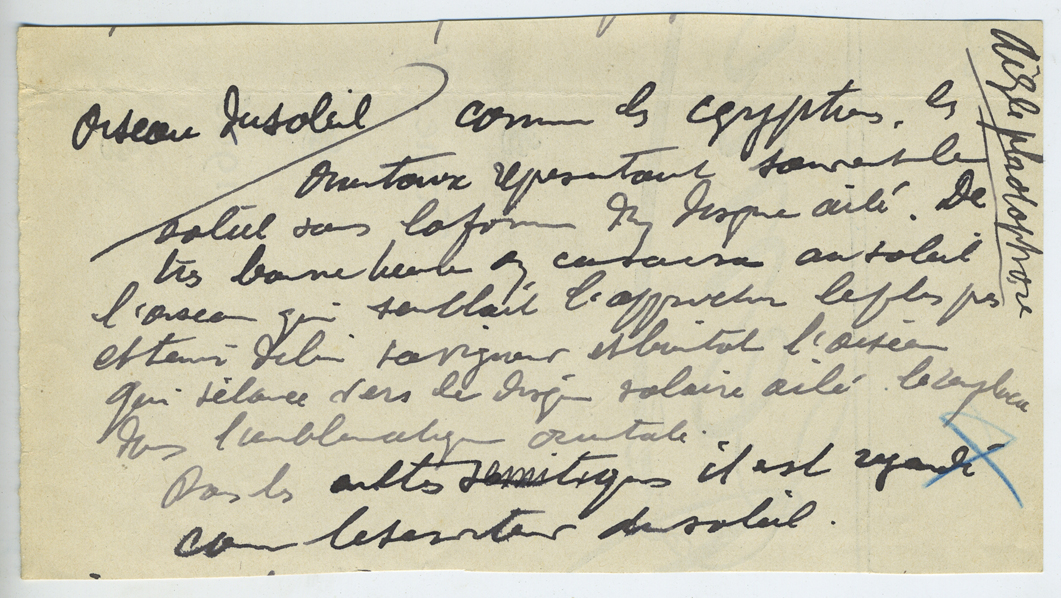 Oiseau du soleil comme les egyptiens, les
Orientaux representant souvent le
soleil sous la forme du disque ailé. De
très bonne heure on consacra au soleil
l'oiseau qui semblait l'approcher le plus pres
et tenir de lui sa vigueur et bientot l'oiseau
qui s'élance vers le disque solaire ailé le remplaca
dans l'emblematique orientale.
Dans les cultes semitiques il est regardé
comme le serviteur du soleil.
Aigle placlophore